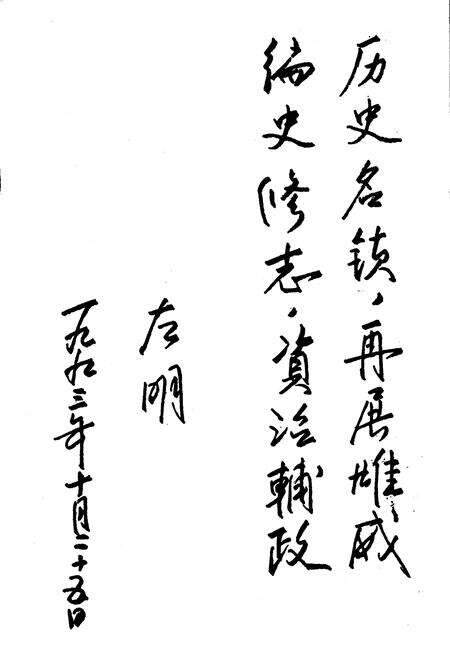 历史名镇，再展雄威
编史修志，資治輔政
左明
一九九三年十月二十五日